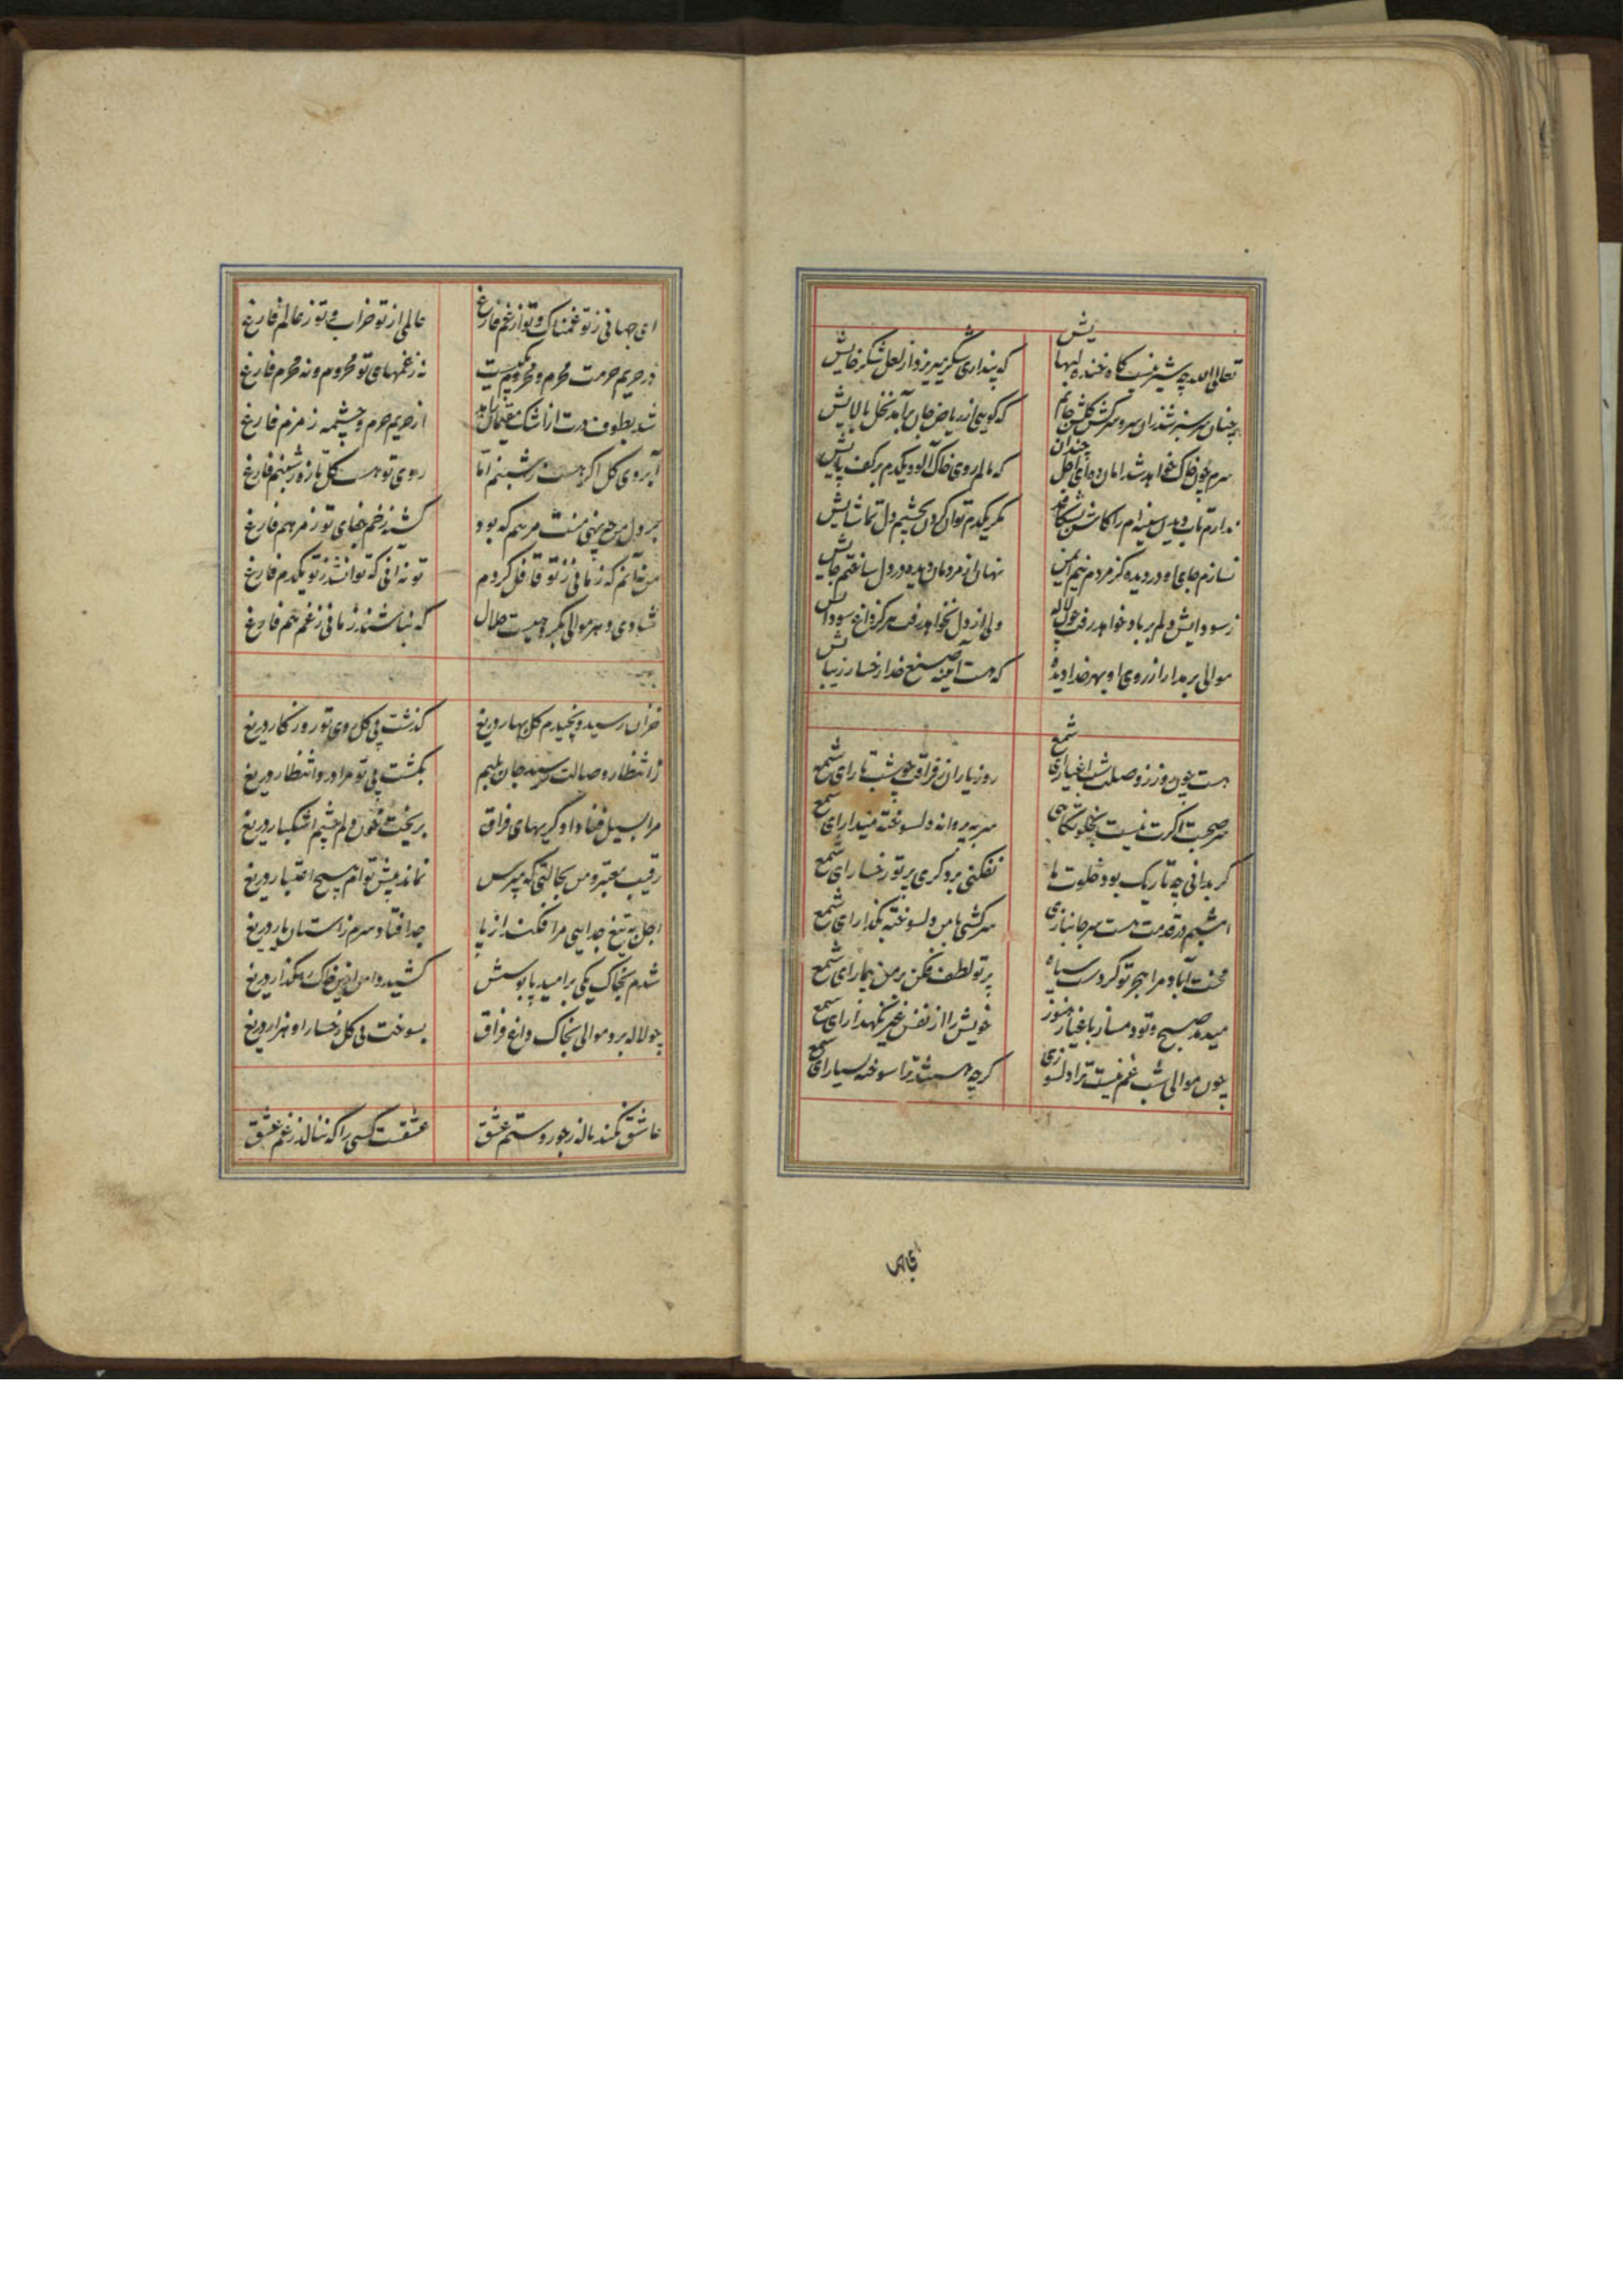 تعالی الله چه شیرینست گاه خنده لبهایش
که پنداری شکر میریزد از لعل شکرخایش
چنان سرسبز شد زان سرو سرکش گلشن جانم
که گویی از ریاض جان برآمد نخل بالایش
سرم چون خاک خواهد شد امان ده ای اجل چندان
که مالم روی خاک آلود یکدم بر کف پایش
ندارم تاب دیدن سینه‌ام را کاش بشکافند
مگر یکدم توان کردن بچشم دل تماشایش
نسازم جای او در دیده کز مردم نیم ایمن
نهان از مردمان دیده در دل ساختم جایش
ز سودایش دلم بر باد خواهد رفت چون لاله
ولی از دل نخواهد رفت هرگز داغ سودایش
موالی بر مدار از روی او بهر خدا دیده
که هست آیینه صنع خدا رخسار زیبایش
هست چون روز ز وصلت شب اغیار ای شمع
روز یاران ز فراقت چو شب تار ای شمع
سر صحبت اگرت نیست بخلوتگاهی
سر به پروانه دلسوخته میدار ای شمع
گر بدانی چه تاریک بود خلوت ما
نفکنی بر دگری پرتو رخسار ای شمع
امشبم در قدمت هست سر جانبازی
سرکشی با من دلسوخته بگذار ای شمع
محنت آباد مرا هجر تو کردست سیاه
پرتو لطف فکن بر من بیمار ای شمع
میدمد صبح و تو دمساز باغیار هنوز
خویش را از نفس غیر نگهدار ای شمع
چون موالی شب غم نیست ترا دلسوزی
گرچه هستند ترا سوخته بسیار ای شمع
ای جهانی ز تو غمناک و تو از غم فارغ
عالمی از تو خراب و تو ز عالم فارغ
در حریم حرمت محرم و محروم یکیست
نه ز غمهای تو محروم و نه محرم فارغ
شد بطوف درت از اشک مقیمان
از حریم حرم و چشمه زمزم فارغ
آبروی گل اگر هست ز شبنم اما
روی تو هست گل تازه ز شبنم فارغ
بر دل منت مرهم که بود
کشته زخم جفای تو ز مرهم فارغ
من نه آنم که زمانی ز تو غافل گردم
تو نه آنی که توان شد ز تو یکدم فارغ
شادی دهر موالی بکه حلال
که نباشند زمانی ز غم هم فارغ
خزان رسید و نچیدم گل بهار دریغ
گذشت بی گل روی تو روزگار دریغ
ز انتظار وصالت رسید جان بلبم
بکشت بی تو مرا درد انتظار دریغ
مرا بسیل فنا داد گریهای فراق
بریخت خون دلم چشم اشکبار دریغ
رقیب معتبر و من بحالتی که مپرس
نماند پیش توام هیچ اعتبار دریغ
اجل به تیغ جدایی مرا فکند از پا
جدا فتاد سرم ز آستان یار دریغ
شدم بخاک یکی بر امید پابوسش
کشید دامن ازین خاک رهگذار دریغ
چو لاله برد موالی بخاک داغ فراق
بسوخت بی گل رخسار او هزار دریغ
عاشق نکند ناله ز جور و ستم عشق
عشقست کسی را که ننالد ز غم عشق